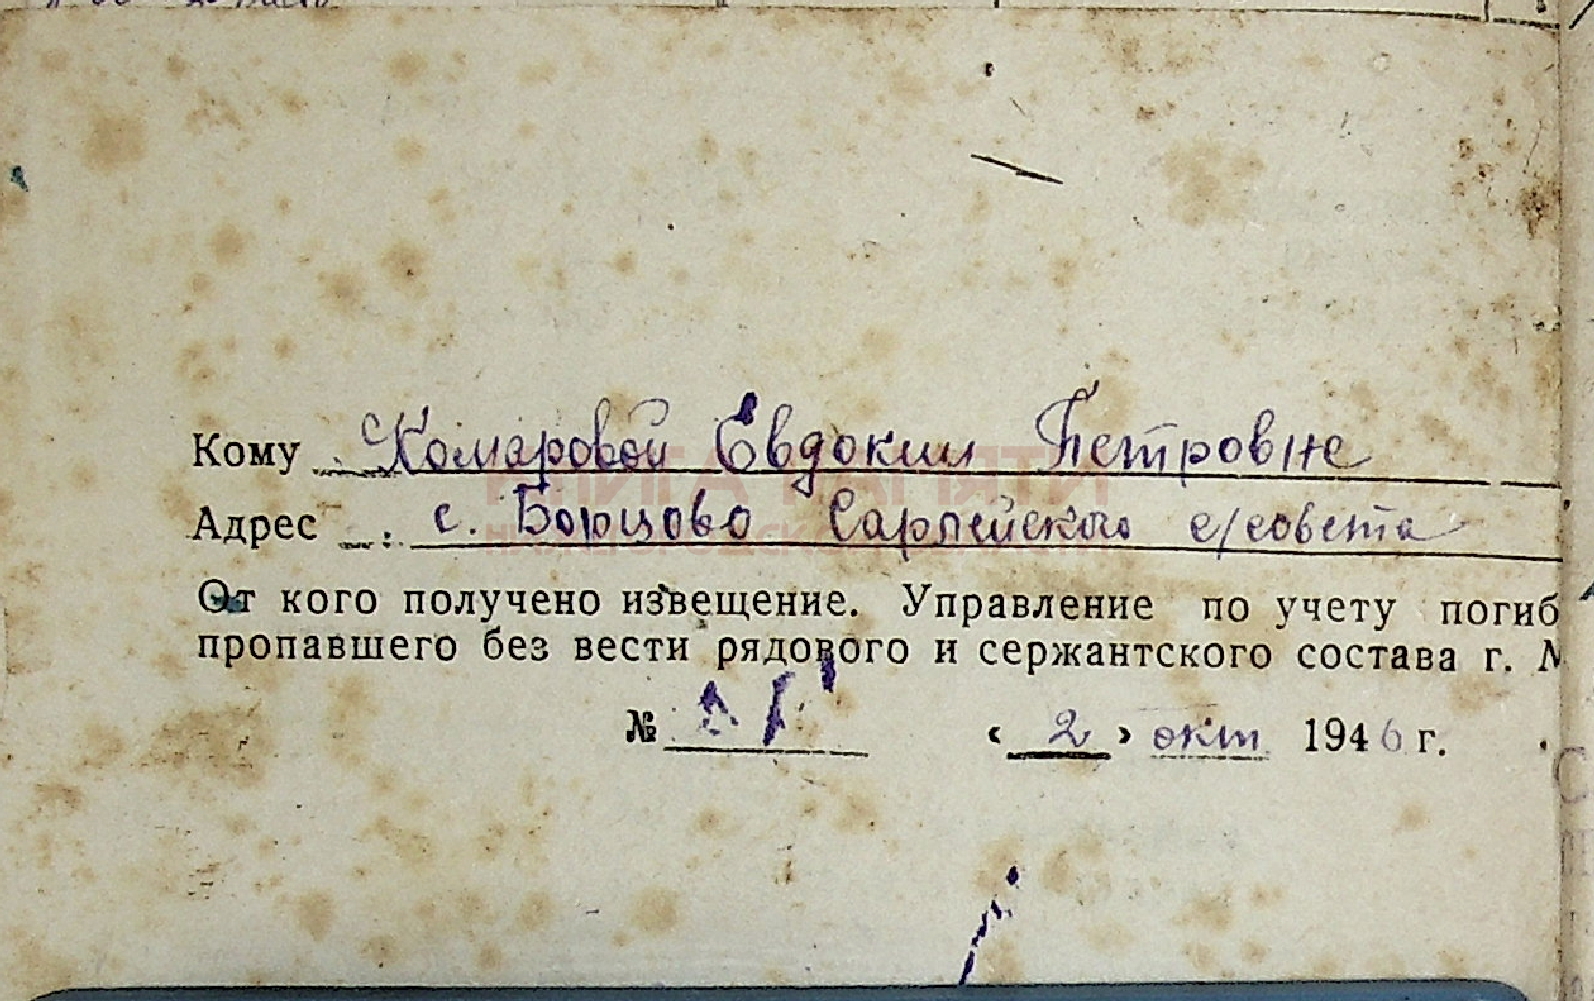 Кому Комаровой Евдокии Петровне
КНИГА ПАМЯТИ
Адрес с. Борцово Сарлейского с/совета
От кого получено извещение. Управление по учету погиб
пропавшего без вести рядового и сержантского состава г. М
№ « 2 » окт 1946 г.